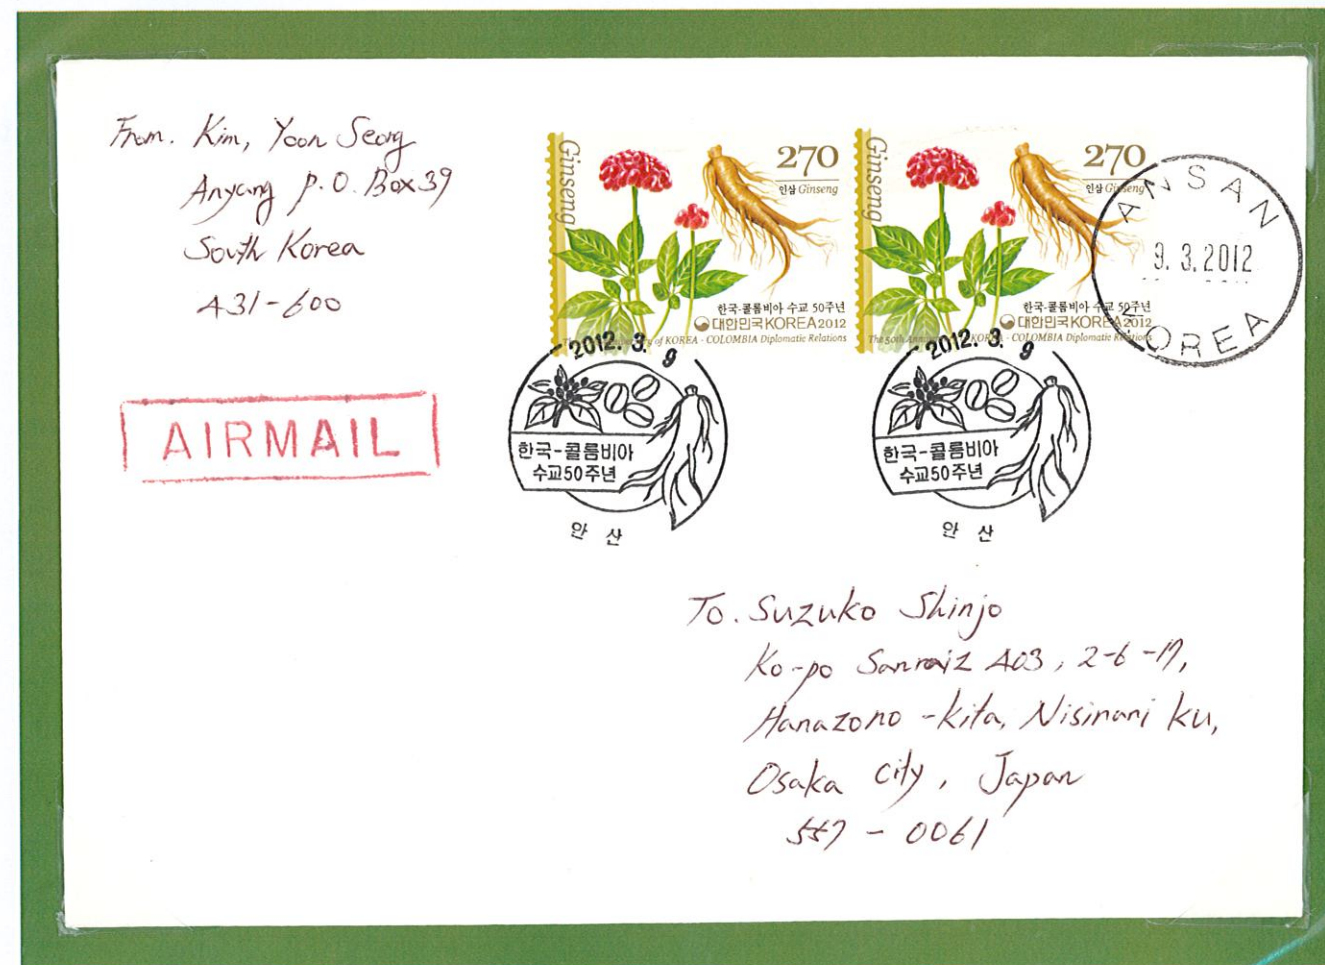 From. Kim, Yoon Seong
Anyang P.O. Box 39
South Korea
431-600
AIRMAIL
Ginseng
270
인삼 Ginseng
한국·콜롬비아 수교 50주년
대한민국 KOREA 2012
of KOREA - COLOMBIA Diplomatic Relations
Ginseng
270
인삼 Ginseng
한국·콜롬비아 수교 50주년
대한민국 KOREA 2012
The 50th KOREA - COLOMBIA Diplomatic Relations
ANSAN
9.3.2012
KOREA
2012. 3. 9
한국-콜롬비아
수교50주년
안 산
2012. 3. 9
한국-콜롬비아
수교50주년
안 산
To. Suzuko Shinjo
Ko-po Sanraiz 403, 2-6-17,
Hanazono-kita, Nisinari ku,
Osaka city, Japan
557-0061